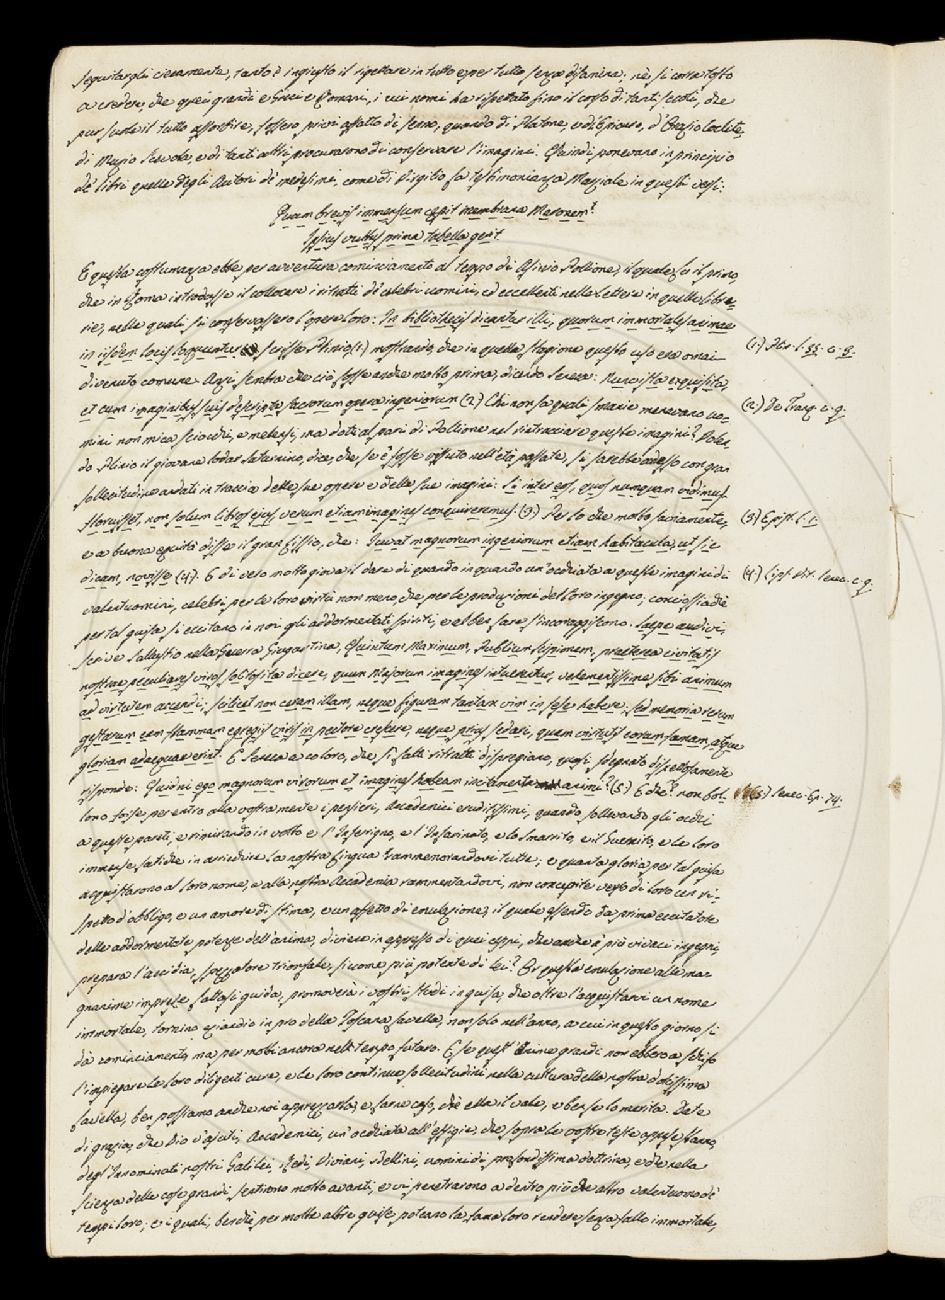 seguitargli ciecamente, tanto è ingiusto il rigettare in tutto e per tutto senza disamina; nè si corra tosto
a credere, che quei grandi e Greci e Romani, i cui nomi ha rispettato sino il corso di tanti secoli, che
pur suole il tutto assorbire, fossero privi affatto di senno, quando di Platone, e di Epicuro, d'Orazio Coclite,
di Muzio Scevola, e di tanti altri procurarono di conservare l'imagini. Quindi ponevano in principio
de' libri quelle degli Autori de' medesimi, come di Virgilio fa testimonianza Marziale in questi versi:
Quam brevis immensum cepit membrana Maronem!
Ipsius vultus prima tabella gerit.
E questa costumanza ebbe per avventura cominciamento al tempo di Asinio Pollione, il quale fu il primo,
che in Roma introdusse il collocare i ritratti de' celebri uomini, ed eccellenti nelle Lettere in quelle libre-
rie, nelle quali si conservassero l'opere loro: In bibliothecis dicantur illi, quorum immortales animae
in iisdem locis loquuntur scrisse Plinio (1) mostrando, che in quella stagione questo uso era omai
divenuto comune. Anzi sembra che ciò fosse anche molto prima, dicendo Seneca: Nunc ista exquisita,
et cum imaginibus suis descripta sacrorum opera ingeniorum (2) Chi non sa quali smanie menavano uo-
mini non mica sciocchi, e melensi, ma dotti al pari di Pollione nel rintracciare queste imagini? Volen-
do Plinio il giovane lodar Saturnino, dice, che, se e' fosse vissuto nell'età passate, si sarebbe adesso con gran
sollecitudine andati in traccia delle sue opere e delle sue imagini: Si inter eos, quos nunquam vidimus
floruisset, non solum libros ejus, verum etiam imagines conquireremus. (3) Per lo che molto saviamente,
e a buona equità disse il gran Lissio, che: Iuvat magnorum ingeniorum etiam habitacula, ut sic
dicam, novisse (4). E di vero molto giova il dare di quando in quando un'occhiata a queste imagini di
valentuomini, celebri per le loro virtù non meno, che per le produzioni del loro ingegno; conciossiachè
per tal guisa si eccitano in noi gli addormentati spiriti, e al ben fare s'incoraggiscono. Saepe audivi,
scrive Sallustio nella Guerra Giugurtina, Quintum Maximum, Publium Scipionem, praeterea civitatis
nostrae praeclaros viros solitos ita dicere, quum Majorum imagines intuerentur, vehementissime sibi animum
ad virtutem accendi; scilicet non ceram illam, neque figuram tantam vim in sese habere; sed memoria rerum
gestarum eam flammam egregiis viris in pectore crescere, neque prius sedari, quam virtus eorum famam, atque
gloriam adaequaverit. E Seneca a coloro, che sì fatti ritratti dispregiano, quasi sdegnato dispettosamente
risponde: Quidni ego magnorum virorum et imagines habeam incitamenta animi? (5) E che? non bol-
lono forse per entro alla vostra mente i pensieri, Accademici eruditissimi, quando sollevando gli occhi
a queste pareti, e rimirando in volto e l'Inferigno, e l'Infarinato, e lo Smarrito, e il Guernito, e le loro
immense fatiche in arricchire la nostra lingua rammemorandovi tutte; e quanta gloria per tal guisa
acquistarono al loro nome, e alla nostra Accademia rammentandovi, non concepite verso di loro un ri-
spetto d'obbligo, e un amore di stima, e un affetto di emulazione, il quale essendo da prima eccitatore
delle addormentate potenze dell'anima, diviene in appresso di quei sproni, che anche a' più vivaci ingegni,
prepara l'accidia, spezzatore trionfale, siccome più potente di lei? Or questa emulazione alle ma-
gnanime imprese fattasi guida, promoverà i vostri studi in guisa, che oltre l'acquistarvi un nome
immortale, tornino eziandio in pro della Toscana favella, non solo nell'anno, a cui in questo giorno si
dà cominciamento, ma per molti ancora nel tempo futuro. E se quest'Anime grandi non ebbero a schifo
l'impiegare le loro diligenti cure, e le loro continue sollecitudini nella cultura della nostra dolcissima
favella, ben possiamo anche noi apprezzarla, e farne caso, ch'ella il vale, e ben se lo merita. Date
di grazia, che Dio v'ajuti, Accademici, un'occhiata all'effigie, che sopra le vostre teste appese stanno,
degl'Innominati nostri Galilei, Redi, Viviani, Bellini, uomini di profondissima dottrina, e che nella
scienza delle cose grandi sentirono molto avanti, e vi penetrarono a dentro più che altro valentuomo de'
tempi loro; e i quali, benchè per molte altre guise poteano la fama loro rendere senza fallo immortale,
(1) Plin. l. 35. c. 2.
(2) De Tranq. c. 9.
(3) Epist. l. 1.
(4) Lips. Vit. Senec. c. 9.
(5) Senec. Ep. 74.